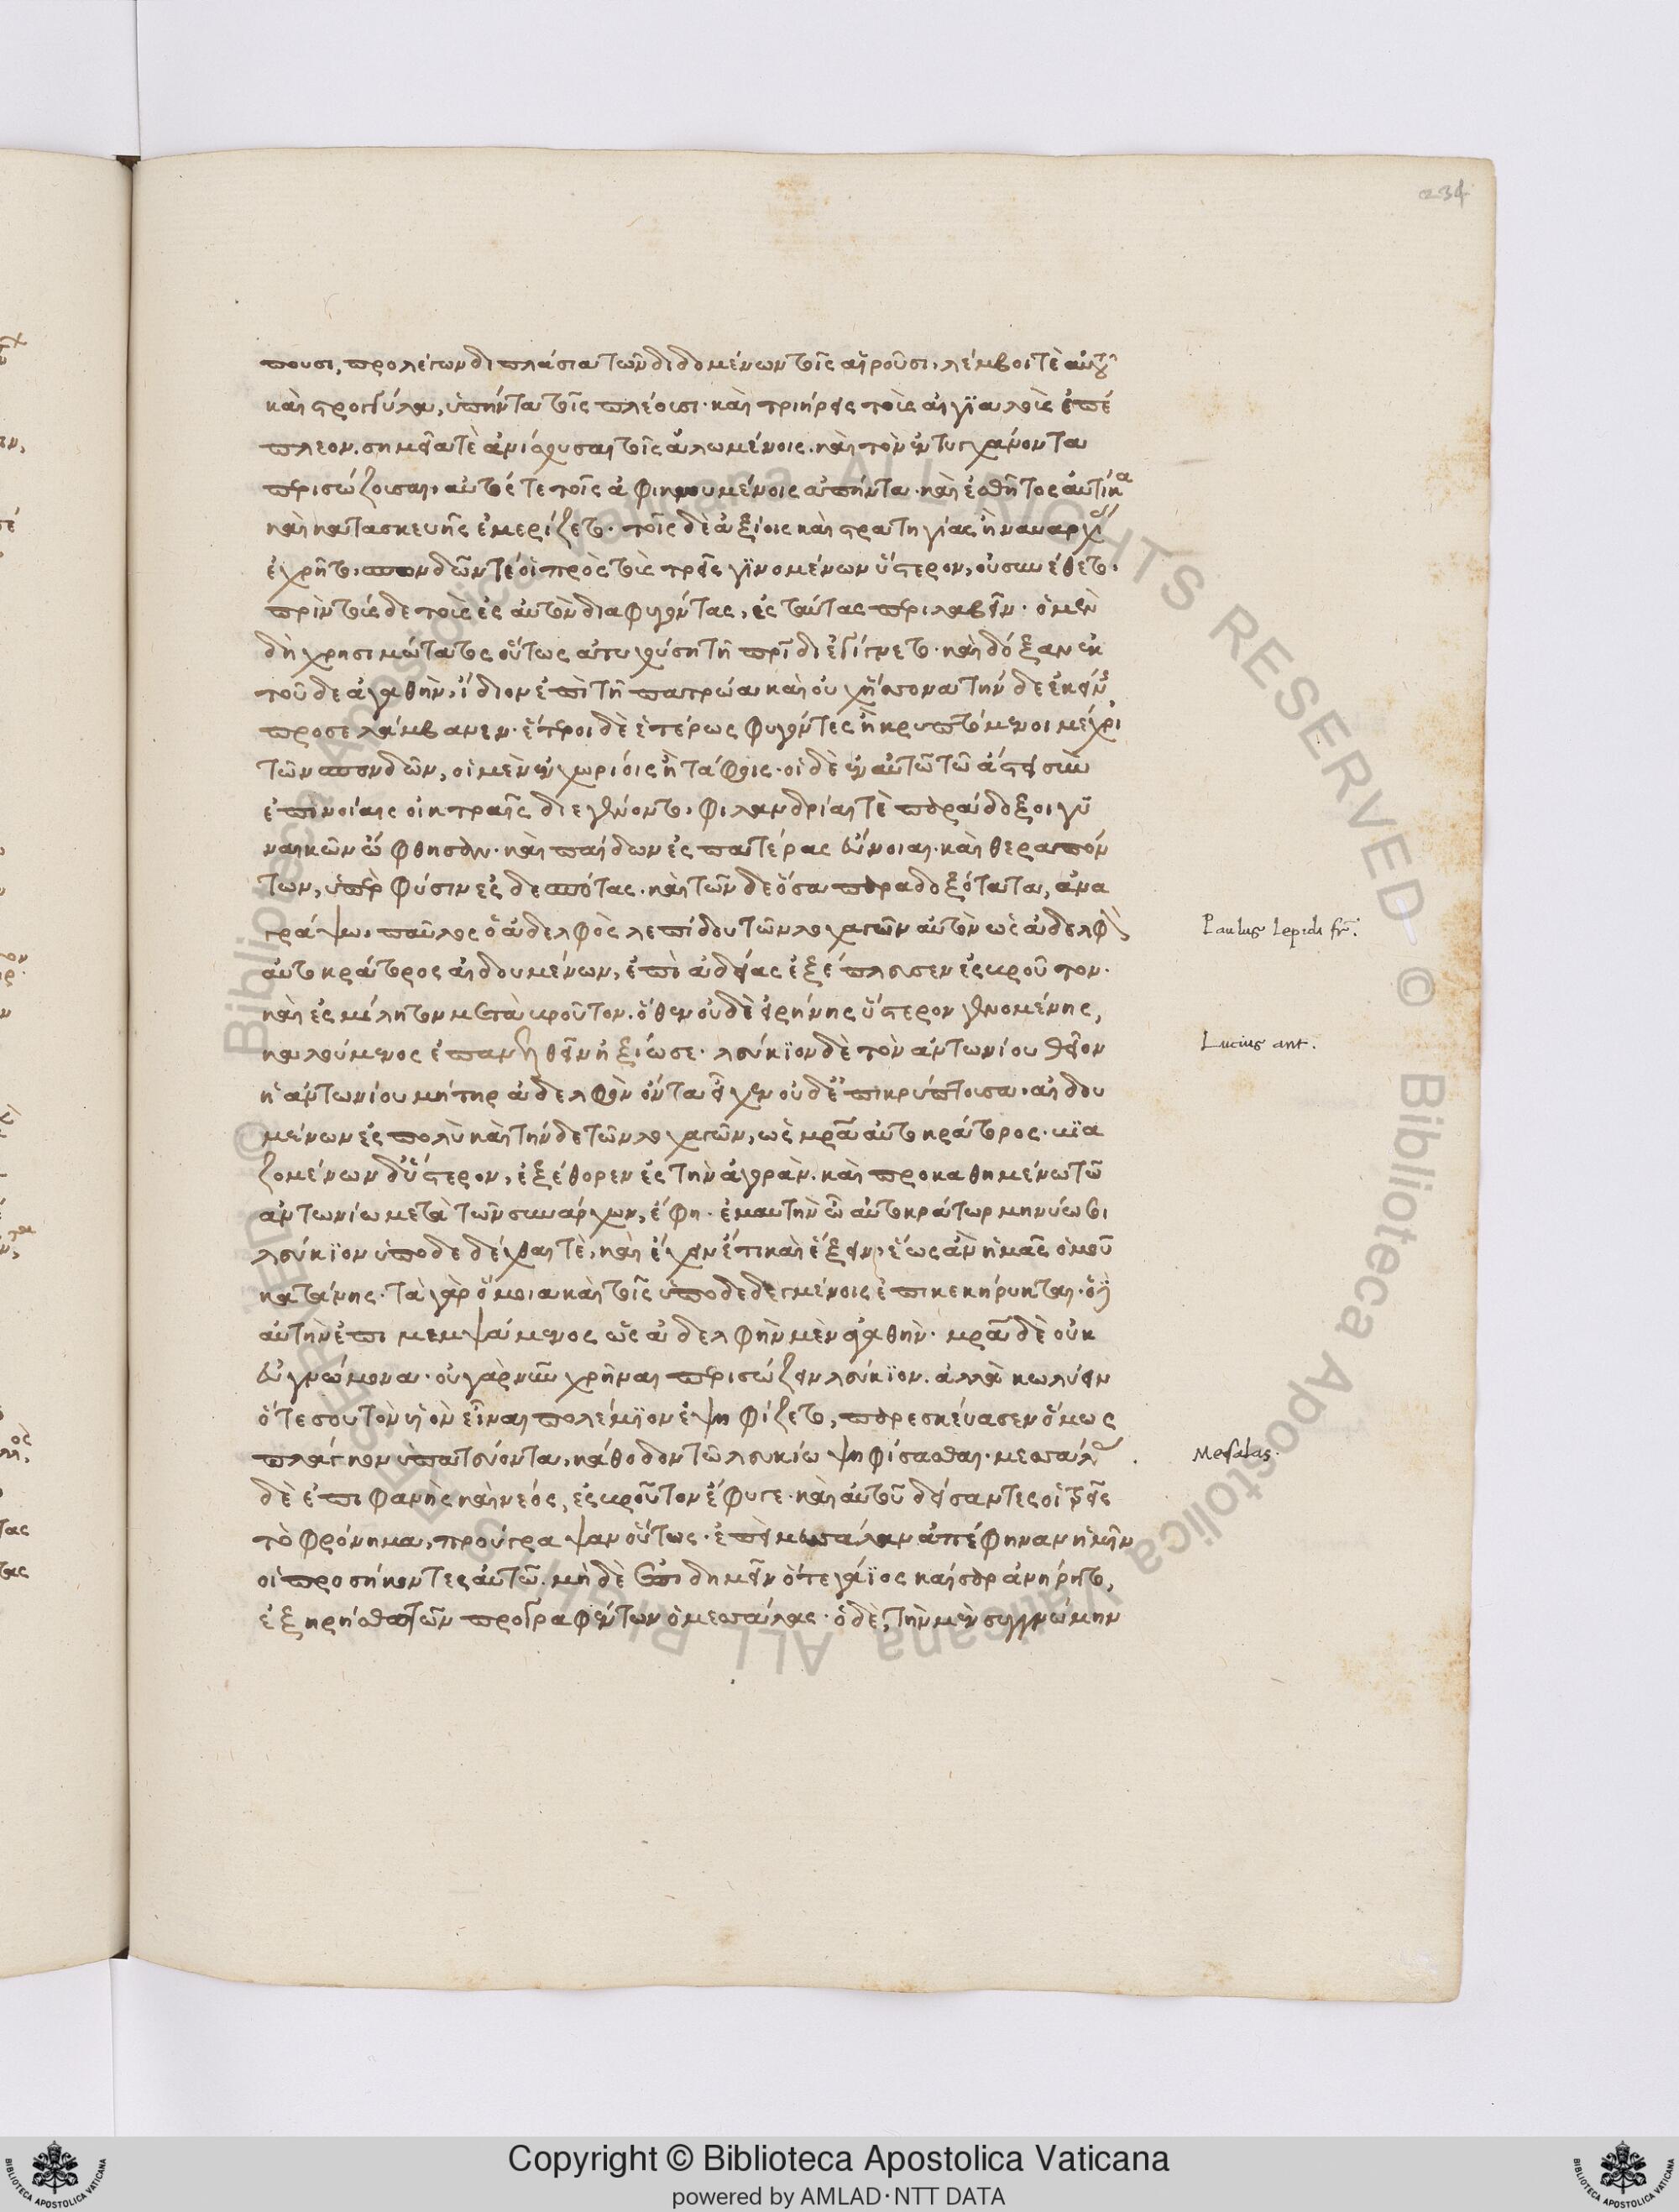 234
πουσι, προλέγων διπλάσια τῶν διδομένων τοῖς αἱροῦσι, λέμβοι τὲ αὐτοῦ
καὶ στρογγύλα, ὑπήντα τοῖς πλέουσι. καὶ τριήρεις τοῖς αἰγϊαλοῖς ἐπέ
πλεον. σημεῖά τὲ ἀνίσχουσαι τοῖς ἀλωμένοις. καὶ τὸν ἐντυγχάνοντα
περισώζουσαι, αὐτός τε τοῖς ἀφικνουμένοις ἀπήντα. καὶ ἐσθῆτος αὐτίκα
καὶ κατασκευῆς ἐμερίζετο. τοῖς δὲ ἀξίοις καὶ στρατηγίας ἢ ναυαρχίας
ἐχρῆτο. σπονδῶν τέ οἱ πρὸς τοὺς τρεῖς γϊνομένων ὕστερον, οὐ συνέθετο,
πρὶν τούς δε τοὺς ἐς αὐτὸν διαφυγόντας, ἐς ταύτας περιλαβεῖν. ὁ μὲν
δὴ χρησιμώτατος οὕτως ἀτυχούση τῆ πατρίδι ἐγίγνετο. καὶ δόξαν ἐκ
τοῦδε ἀγαθὴν, ἴδιον ἐπὶ τῆ πατρώα καὶ οὐχ ἥσσονα τήν δε ἐκείνης
προσελάμβανεν. ἕτεροι δὲ ἑτέρως φυγόντες ἢ κρυπτόμενοι μέχρι
τῶν σπονδῶν, οἱ μὲν ἐν χωρίοις ἢ τάφοις. οἱ δὲ ἐν αὐτῶ τῶ ἄστει σὺν
ἐπινοίαις οἰκτραῖς διεγένοντο. φιλανδρίαι τὲ παράδοξοι γυ
ναικῶν ὤφθησαν. καὶ παίδων ἐς πατέρας εὔνοιαι. καὶ θεραπόν
των, ὑπὲρ φύσιν ἐς δεσπότας. καὶ τῶν δε ὅσα παραδοξότατα, ἀνα
γράψω. παῦλος ὁ ἀδελφὸς λεπίδου τῶν λοχαγῶν αὐτὸν ὡς ἀδελφὸν
αὐτοκράτορος αἰδουμένων, ἐπὶ ἀδείας ἐξέπλευσεν ἐς βροῦτον.
καὶ ἐς μίλητον μετὰ βροῦτον. ὅθεν οὐδὲ εἰρήνης ὕστερον γενομένης,
καλούμενος ἐπανελθεῖν ἠξίωσε. λεύκϊον δὲ τὸν ἀντωνίου θεῖον
ἡ ἀντωνίου μήτηρ ἀδελφὸν ὄντα εἶχεν οὐδ' ἐπικρύπτουσα, αἰδου
μένων ἐς πολὺ καὶ τήνδε τῶν λοχαγῶν, ὡς μητέρα αὐτοκράτορος. βϊα
ζομένων δ' ὕστερον, ἐξέθορεν ἐς τὴν ἀγορὰν. καὶ προκαθημένω τῶ
ἀντωνίω μετὰ τῶν συνάρχων, ἔφη. ἐμαυτὴν ὦ αὐτοκράτωρ μηνύω σοι
λεύκϊον ὑποδεδέχθαι τὲ, καὶ ἔχειν ἔτι καὶ ἕξειν, ἕως ἂν ἡμᾶς ὁμοῦ
κατακάνης. τὰ γὰρ ὅμοια καὶ τοῖς ὑποδεδεγμένοις ἐπικεκήρυκται. ὁ δὲ
αὐτὴν ἐπιμεμψάμενος ὡς ἀδελφὴν μὲν ἀγαθὴν. μητέρα δὲ οὐκ
εὐγνώμονα. οὐ γὰρ νῦν χρῆναι περισώζειν λεύκϊον. ἀλλὰ κωλύειν
ὅτε σου τὸν υἱὸν εἶναι πολέμϊον ἐψηφίζετο, παρεσκεύασεν ὅμως
πλάγκον ὑπατεύοντα, κάθοδον τῶ λευκίω ψηφίσασθαι. μεσσάλας
δὲ ἐπιφανὴς καὶ νέος, ἐς βροῦτον ἔφυγε. καὶ αὐτοῦ δείσαντες οἱ τρεῖς
τὸ φρόνημα, προύγραψαν οὕτως. ἐπεὶ μεσσάλαν ἀπέφηναν ἡμῖν
οἱ προσήκοντες αὐτῶ. μὴ δὲ ἐπιδημεῖν ὅτε γάϊος καῖσαρ ἀνήρητο,
ἐξηρήσθω τῶν προγραφέντων ὁ μεσσάλας. ὁ δὲ, τὴν μὲν συγγνώμην
Paulus Lepidi fr.
Lucius ant.
Mesalas.
Copyright © Biblioteca Apostolica Vaticana
powered by AMLAD・NTT DATA